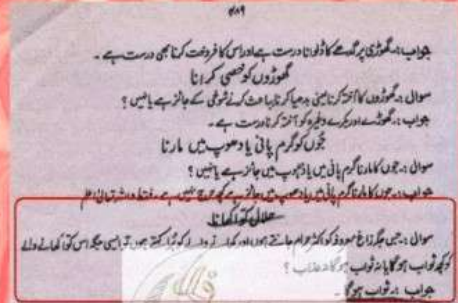 ۴۸۹
جواب :۔ گھوڑی پر گدھے کا ڈلوانا درست ہے اور اس کا فروخت کرنا بھی درست ہے ۔
گھوڑوں کو خصی کرانا
سوال :۔ گھوڑوں کا آختہ کرنا یعنی بدھیا کرنا بباعث کرنے شوخی کے جائز ہے یا نہیں ؟
جواب :۔ گھوڑے اور بکرے وغیرہ کو آختہ کرنا درست ہے ۔
جُوں کو گرم پانی یا دھوپ میں مارنا
سوال :۔ جوں کا مارنا گرم پانی میں یا دھوپ میں جائز ہے یا نہیں ؟
جواب :۔ جوں کا مارنا گرم پانی میں یا دھوپ میں جائز ہے کچھ حرج نہیں ہے ۔ فقط واللہ تعالیٰ اعلم
کوا کھانا
سوال :۔ جس جگہ زاغ معروفہ کو اکثر حرام جانتے ہوں اور کھانے والے کو بُرا کہتے ہوں تو ایسی جگہ اس کوّا کھانے والے
کو کچھ ثواب ہو گا یا نہ ثواب ہو گا نہ عذاب ؟
جواب :۔ ثواب ہو گا ۔